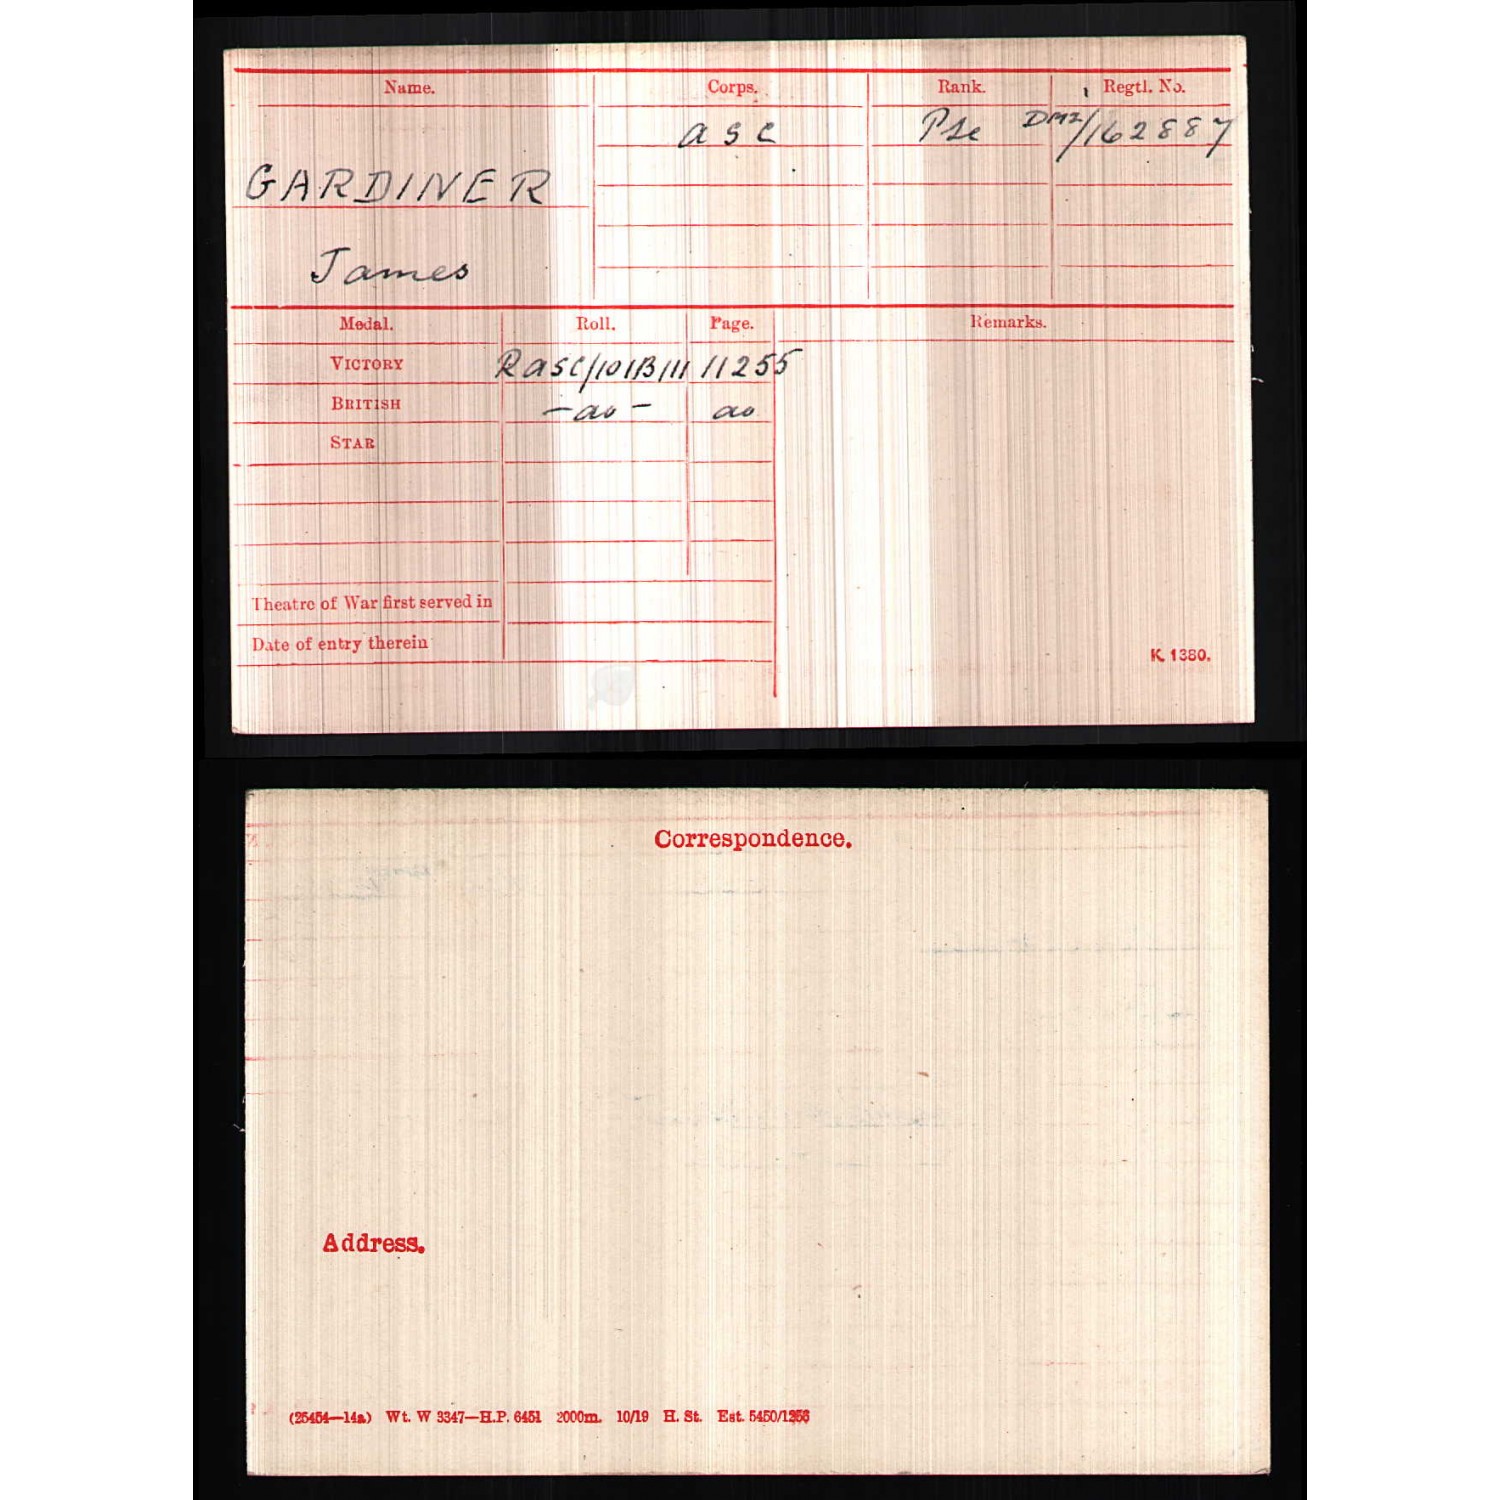 Name. Corps. Rank. Regtl. No.
ASC Pte DM2/162887
GARDINER
James
Medal. Roll. Page. Remarks.
VICTORY RASC/101B111 11255
BRITISH -do- do
STAR
Theatre of War first served in
Date of entry therein
K. 1380.
Correspondence.
Address.
(25454—14a) Wt. W 3347—H.P. 6451 2000m. 10/19 H. St. Est. 5450/1256